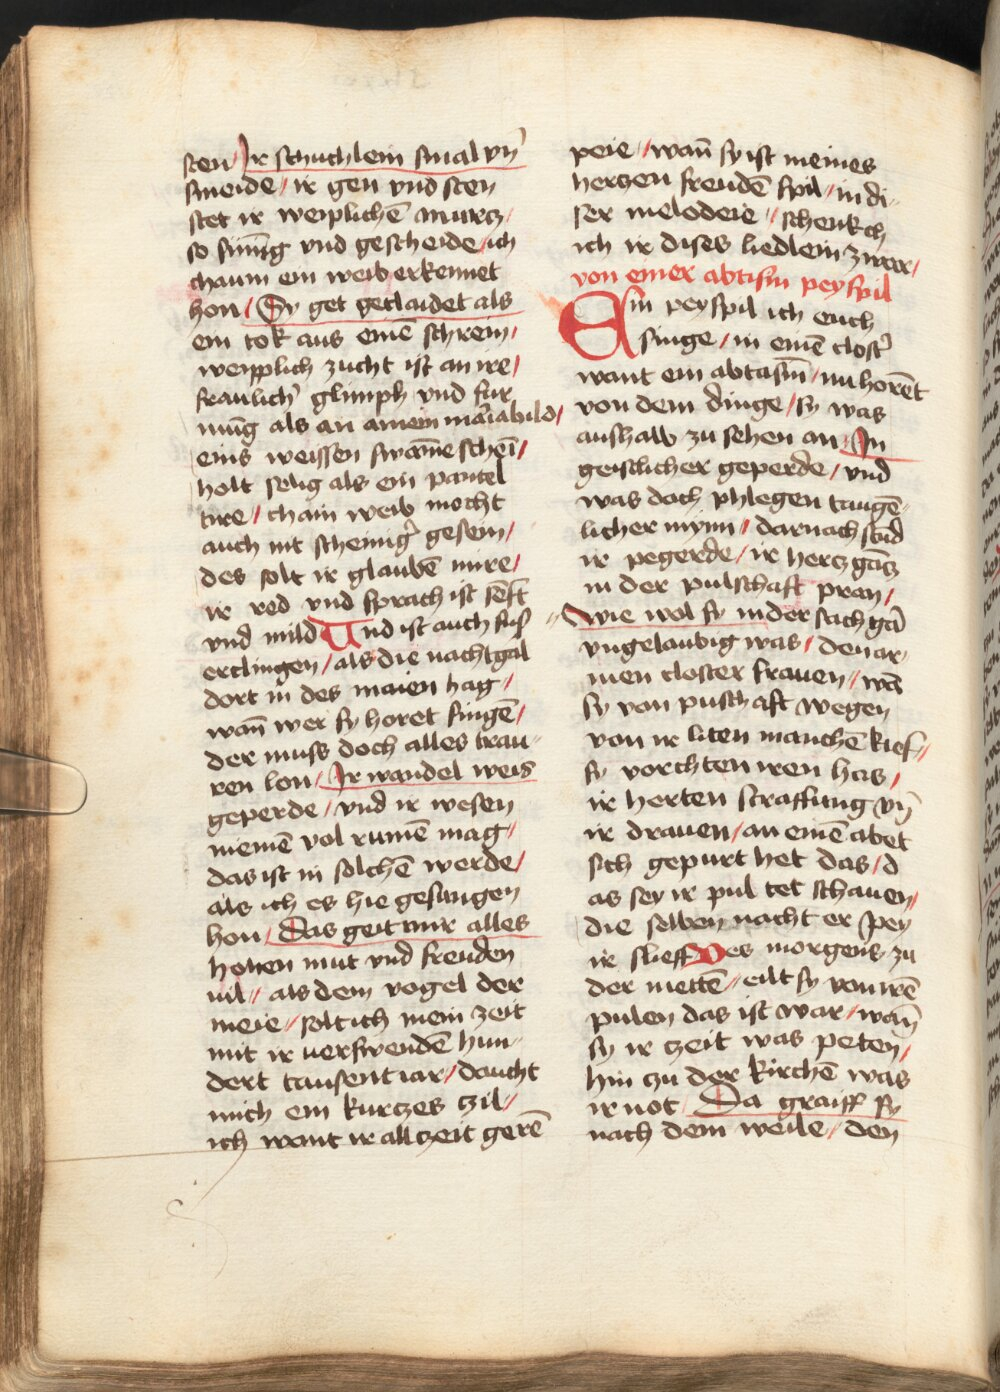 sten / Ir schuchlein smal vn̄
smeide / ir gen vnd sten
stet ir weiplichē murcz /
so smūg vnd gescheide / ich
chaum ein weib erkennet
hon / Sy get geclaidet als
ein tok aus einē schrein /
weipplich zucht ist an ire /
fraulich' glimph vnd fur
mūg als an ainem mariabild /
eins weissen swāne scheī /
holt selig als ein pantel
tire / chain weib mocht
auch nit scheinig' gesein /
des solt ir glaubē mire /
ir red vnd sprach ist sēft
vnd mild Und ist auch sus
erclingen / als die nachtgal
dort in des maien hag /
wan̄ wer sy horet singē /
der muss doch alles trau-
ren lon / Ir wandel weis
geperde / vnd ir wesen
niemē vol rumē mag /
das ist in solchē werde /
als ich es hie gesungen
hon / Das geit mir alles
hohen mut vnd freuden
uil // als dem vogel der
meie // solt ich mein zeit
mit ir verswendē hun-
dert tausent iar / daucht
mich ein kurczes czil //
ich wont ir allczeit gerē
peie / wan̄ sy ist meines
herczen freudē spil / in di-
ser melodeie // schenkch
ich ir dises liedlein zwar /
von einer abtisin peyspil
Ein peyspil ich euch
singe / in einē clost'
want ein abtasin̄ / nu horēt
von dem dinge / sy was
aushalb zu sehen an / In
geistlicher geperde / vnd
was doch phlegen taugē-
licher mynn / darnach stūd
ir pegerde / ir hercz gācz
in der pulschaft pran /
wie wol sy in der sach gā
vngelaubig was / den ar-
men closter frauen // wā
sy von pulschaft wegen
von ir liten manchē kief //
sy vorchten iren has /
ir herten straffung vn̄
ir drauen / an einē abet
sich gepurt het das / d
as sey ir pul tet schauen /
die selben nacht er pey
ir slieff Des morgens zu
der mettē // eilt sy von irē
pulen das ist war / wan̄
sy ir czeit was peten /
hin zu der kirchē was
ir not / Da graiff sy
nach dem weile / den